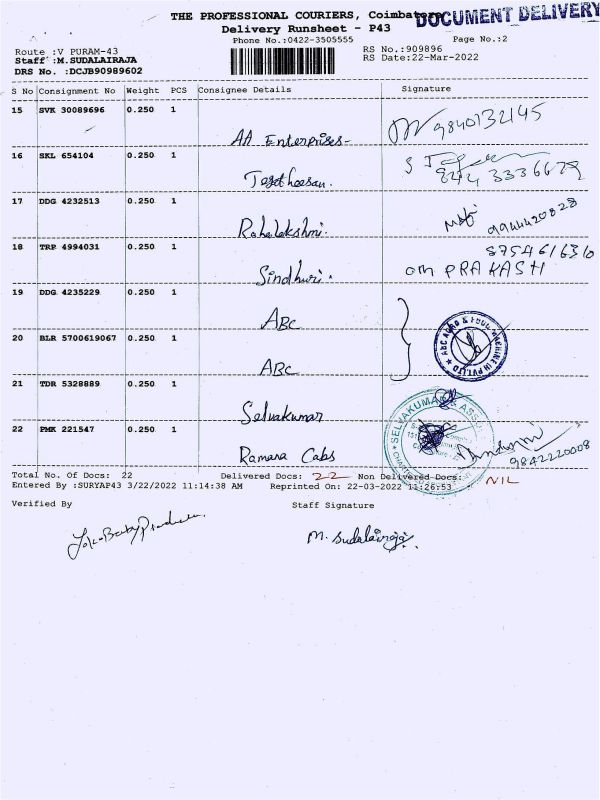 THE PROFESSIONAL COURIERS, Coimbatore
DOCUMENT DELIVERY
Delivery Runsheet - P43
Phone No.:0422-3505555
Page No.:2
Route :V PURAM-43
RS No.:909896
Staff :M.SUDALAIRAJA
RS Date:22-Mar-2022
DRS No. :DCJB90989602
S No Consignment No Weight PCS Consignee Details Signature
15 SVK 30089696 0.250 1
AA Enterprises- 9840132145
16 SKL 654104 0.250 1
17 DDG 4232513 0.250 1
9944420828
18 TRP 4994031 0.250 1
8754616310
Sindhuri. Om PRAKASH
19 DDG 4235229 0.250 1
ABC
20 BLR 5700619067 0.250 1
ABC
ABC AGRO & FOOD MACHINE
21 TDR 5328889 0.250 1
Selvakumar
SELVAKUMAR &
22 PMK 221547 0.250 1
Ramana Cabs 9842220008
Total No. Of Docs: 22 Delivered Docs: 22 Non Delivered Docs: NIL
Entered By :SURYAP43 3/22/2022 11:14:38 AM Reprinted On: 22-03-2022 11:26:53
Verified By Staff Signature
M. Sudalairaja